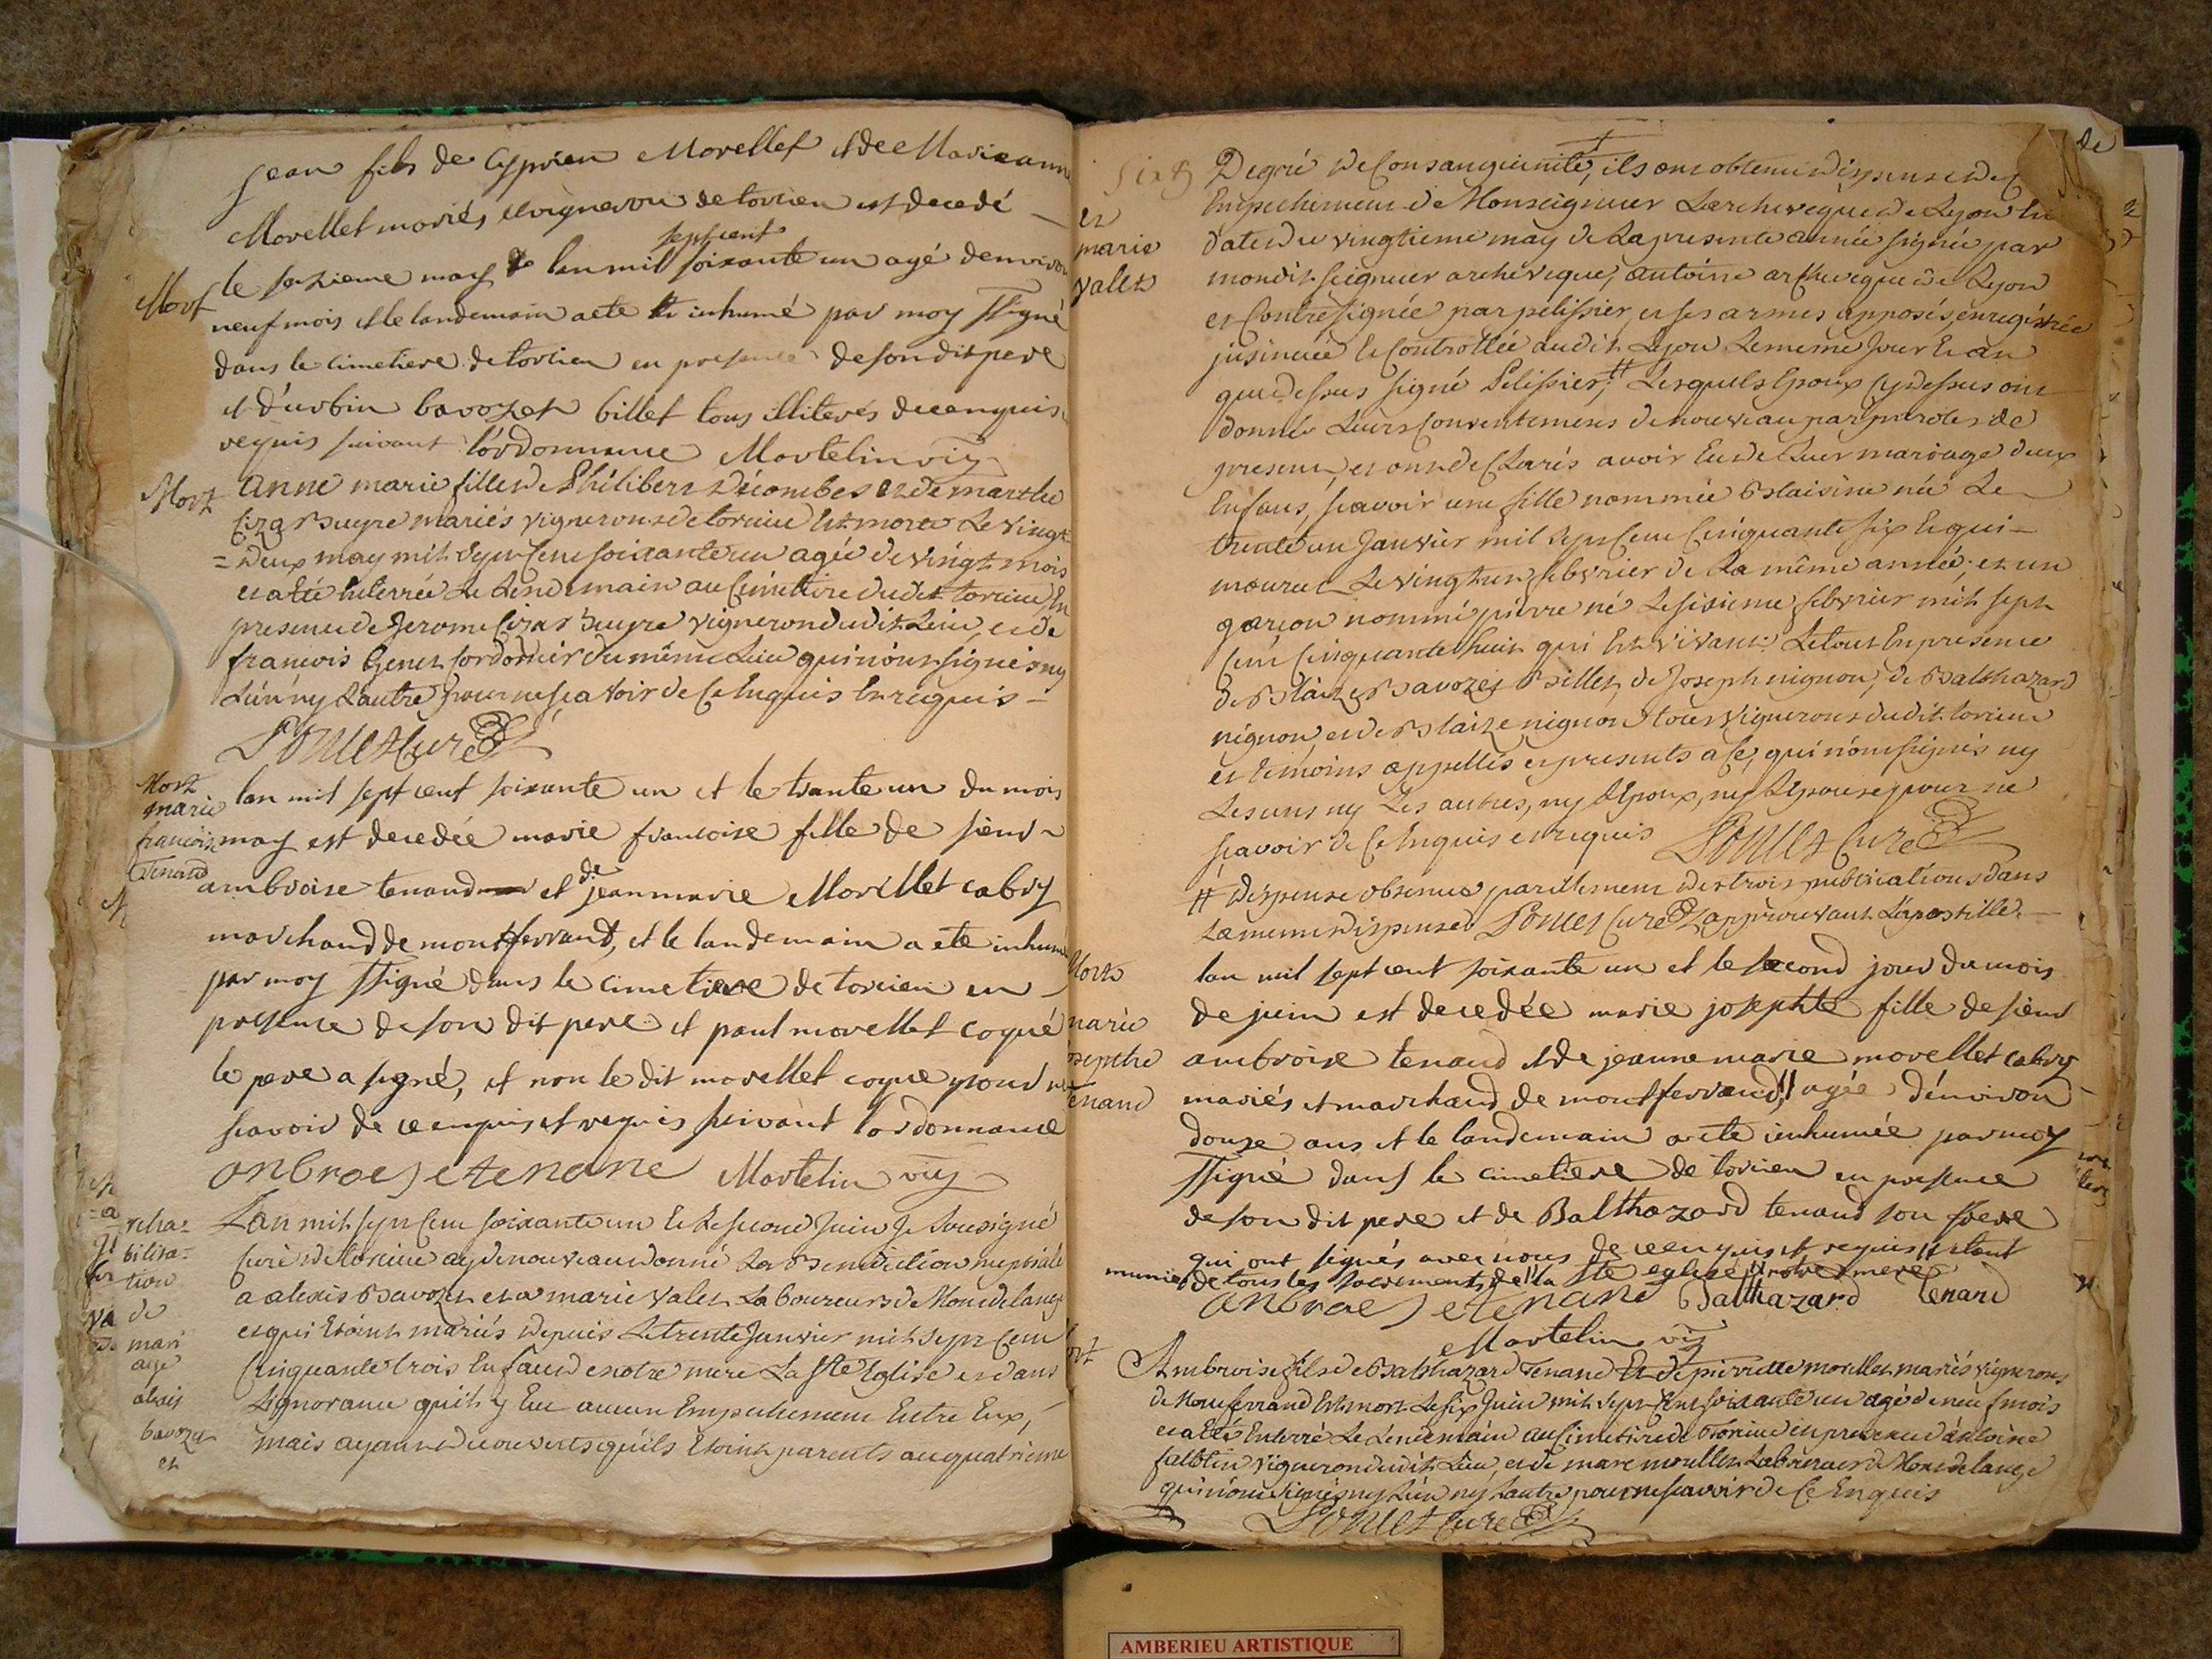 jean fils de Cyprien Morellet et de Marieanne
Morellet mariés vigneron de torcien est decedé
septcent
le sezieme may lan mil soixante un agé denviron
Mort
neuf mois et le landemain a ete inhumé par moy ssigné
dans le cimetiere de torcien en presence de son dit pere
et d'urbin bavozet billet tous illiterés de ce enquis
requis suivant l'ordonnance Martelin vic
Mort
Anne marie fille de Philibert Décombes et de marthe
Cizar mariés vignerons de torcieu Est morte Le vingt
= deux may mil sept Cent soixante un agée de vingt mois
et a été Enterrée Le Lendemain au Cimetiere dudit torcieu En
presence de Jerome Cizar vigneron dudit Lieu, et de
francois Genet Cordonnier du même Lieu qui n'ont signés ny
L'un ny L'autre pour ne scavoir de Ce Enquis Et requis –
Ponset Curé
Mort
marie
francoise
Tenand
lan mil sept cent soixante un et le trante un du mois
may est decedée marie francoise fille de sieur
ambroise tenand et de jeanmarie Morillet cabry
marchand de montferrand, et le landemain a ete inhumé
par moy ssigné dans le cimetiere de torcien en
presence de son dit pere et paul morellet coque
le pere a signé, et non le dit morellet coque pour ne
scavoir de ce enquis et requis suivant lordonnance
onbroes etenane Martelin vic
reha=
bilita=
tion
de
mari
age
alexis
bavozet
et
L'an mil sept Cent soixante un Et Le second Juin Je Soussigné
Curé de torcieu ay de nouveau donné La Benediction nuptiale
a alexis Bavozet et a marie Valet Laboureurs de Montdelange
et qui Etoint mariés Depuis Le trente Janvier mil sept Cent
Cinquante trois En face de notre mere La Ste Eglise et dans
L'ignorance qu'il y Eut aucun Empechement Entre Eux,
mais ayant decouverts qu'ils Etoint parents au quatrieme
et
marie
valet
Degré de Consanguinité, ils ont obtenu dispense de
Empechement de Monseigneur L'archeveque de Lyon En
date du vingtieme may de La presente année signée par
mondit seigneur archeveque, antoine archeveque de Lyon
et Contresignée par pelissier, et ses armes apposés, enregistrée
insinuée Et Controllée audit Lyon Le meme Jour Et an
que dessus signé Pelissier; # Lesquels Epoux Cy dessus ont
donnés Leurs Consentements de nouveau par paroles de
present, et ont declarés avoir Eus de Leur mariage deux
Enfans, scavoir une fille nommée Blaisine née Le
trente un Janvier mil sept Cent Cinquante six Et qui
mourut Le vingt un febvrier de La même année, et un
garcon nommé pierre né Le sixieme febvrier mil sept
Cent Cinquante huit qui Est vivant. Le tout En presence
de Blaize Bavozet Billet, de Joseph nignon, de Balthazard
nignon, et de Blaize nignon tous vignerons dudit torcieu
et temoins appellés et presents a Ce, qui n'ont signés ny
Les uns ny Les autres, ny L'Epoux, ny L'Epouse pour ne
scavoir de Ce Enquis et requis Ponset Curé
# dispense obtenue pareillement des trois publications dans
La meme dispense Ponset Curé approuvant L'apostille.
Mort
marie
josephte
Tenand
lan mil sept cent soixante un et le second jour du mois
de juin est decedée marie josephte fille de sieur
ambroise tenand et de jeanne marie morellet cabry
mariés et marchand de montferrand, agée d'environ
douze ans et le landemain a ete inhumée par moy
ssigné dans le cimetiere de torcien en presence
de son dit pere et de Balthazard tenand son frere
qui ont signés avec nous de ce enquis et requis etant
munies de tous les sacrements de la ste eglise notre mere
onbroes etenane Balthazard Tenand
Martelin vic
Ambroise fils de Balthazard Tenand Et de pierrette morellet mariés vignerons
de Montferrand Est mort Le six Juin mil sept Cent soixante un agé de neuf mois
et a Eté Enterré Le Lendemain au Cimetiere de torcieu en presence d'antoine
falletin vigneron dudit Lieu, et de marc morellet Laboureur de Montdelange
qui n'ont signés ny L'un ny L'autre pour ne scavoir de Ce Enquis
Ponset Curé
AMBERIEU ARTISTIQUE